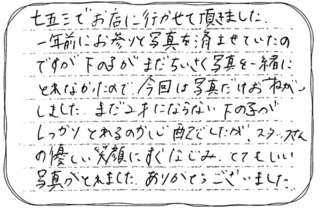 七五三でお店に行かせて頂きました。
一年前にお参りと写真を済ませていたの
ですが下の子がまだちいさく写真を一緒に
とれなかったので、今回は写真だけお願い
しました。まだ2才にならない下の子が
しっかりとれるのか心配でしたが、スタッフさん
の優しい笑顔にすぐなじみ、とてもいい
写真がとれました。ありがとうございました。